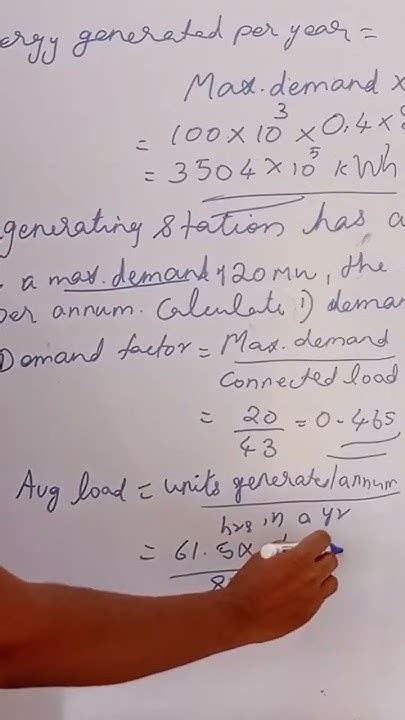 ergy generated per year =
Max. demand ×
= 100 × 10³ × 0.4 ×
= 3504 × 10⁵ kWh
generating station has a
a max. demand of 20 MW, the
per annum. Calculate i) deman
Demand factor = Max. demand
Connected load
= 20
43 = 0.465
Avg load = units generated/annum
hrs in a yr
= 61.5 ×
8